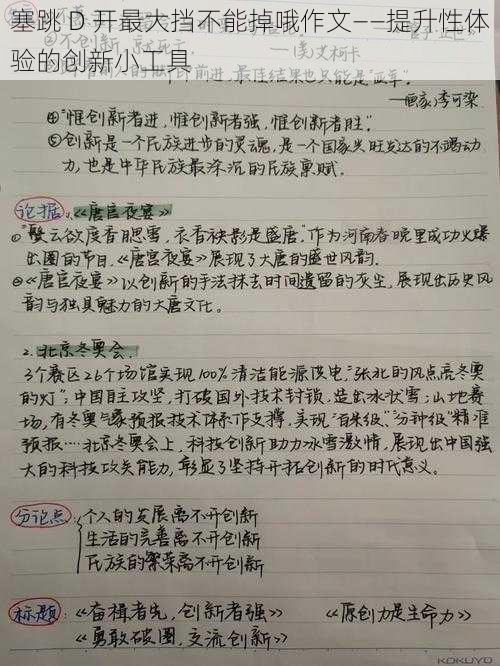 塞跳 D 开最大挡不能掉哦作文——提升性体
验的创新小工具
——奥艾柯卡
最佳结果也只能是“亚军”.
——画家李可染
④“惟创新者进，惟创新者强，惟创新者胜.”
⑤创新是一个民族进步的灵魂，是一个国家兴旺发达的不竭动
力，也是中华民族最深沉的民族禀赋.
论据：1.《唐宫夜宴》
①“鬓云欲度香腮雪，衣香袂影是盛唐.”作为河南春晚里成功火爆
出圈的节目，《唐宫夜宴》展现了大唐的盛世风韵.
②《唐宫夜宴》以创新的手法抹去时间遗留的灰尘，展现出历史风
韵与独具魅力的大唐文化.
2.北京冬奥会.
3个赛区26个场馆实现100%清洁能源供电，“张北的风点亮冬奥
的灯”；中国自主攻坚，打破国外技术封锁，造出冰状雪；山地赛
场，有冬奥气象预报技术体系作支撑，实现“百米级”、“分钟级”精准
预报……北京冬奥会上，科技创新助力冰雪激情，展现出中国强
大的科技攻关能力，彰显了坚持开拓创新的时代意义.
分论点：个人的发展离不开创新
生活的完善离不开创新
民族的繁荣离不开创新
标题：《奋楫者先，创新者强》 《原创力是生命力》
《勇敢破圈，交流创新》
KOKUYO